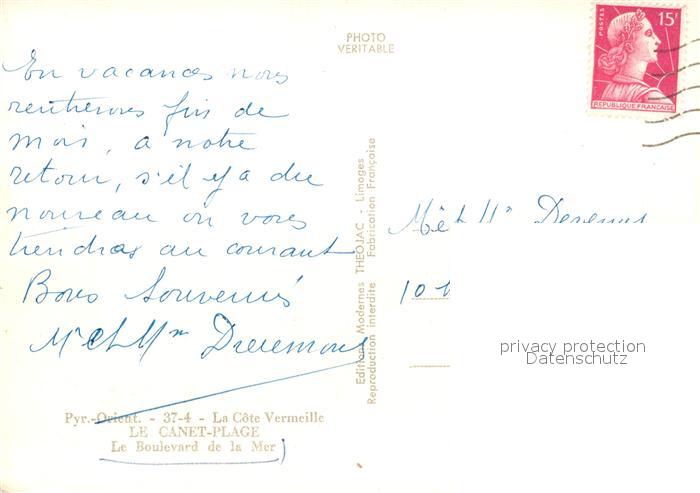 PHOTO
VERITABLE
POSTES
15F
REPUBLIQUE FRANÇAISE
En vacances nous
rentrerons fin de
mois, a notre
retour, s'il y a du
nouveau on vous
tiendras au courant
Bons Souvenirs
Mr et Mme
Editions Modernes THEOJAC - Limoges
Reproduction interdite Fabrication Française
Mr et Mme
10
privacy protection
Datenschutz
Pyr.-Orient. - 37-4 - La Côte Vermeille
LE CANET-PLAGE
Le Boulevard de la Mer